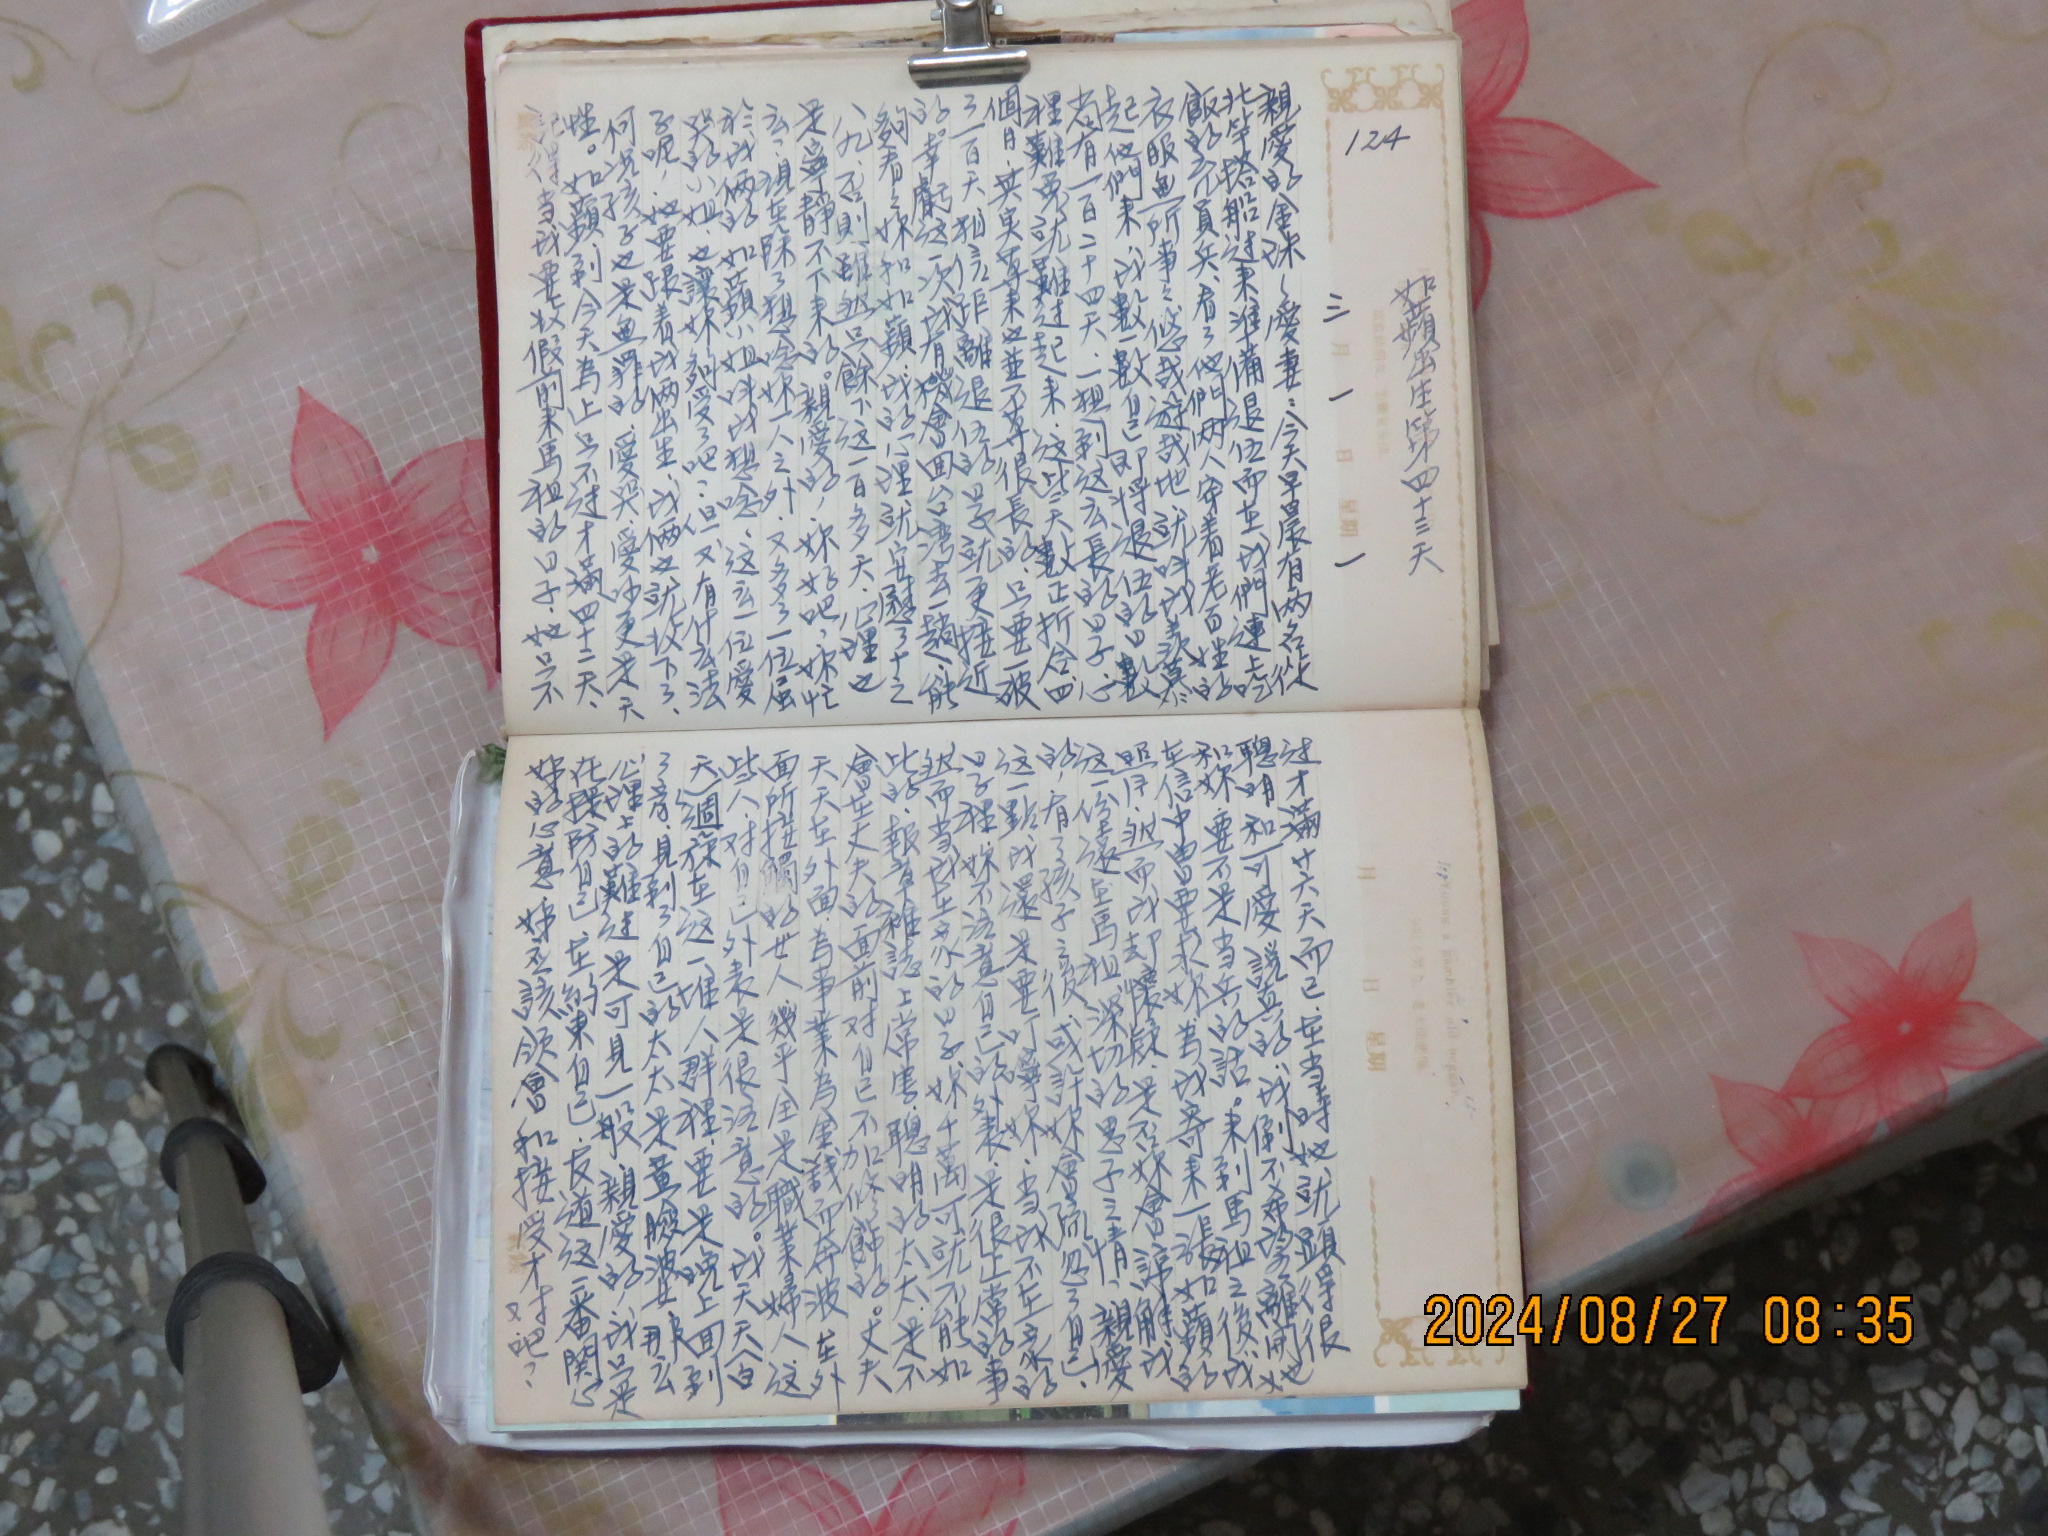 124
如蘋出生第四十三天
三月一日 星期一
親愛的金珠～愛妻：今天早晨有兩名從
北竿搭船过來准備退伍而在我們連上吃
飯的充員兵、看了他們兩人穿着老百姓的
衣服無所事之悠哉遊哉地、就叫我羨慕
起他們來、我數一數自己即将退伍的日數
尚有一百二十四天、一想到这么長的日子、心
裡難免就難过起来、这些天數正折合四
個月、其實算来也並不算很長的、只要一破
了一百天、相信距離退伍的日子就更接近
的。幸虧这一次我有機會回台湾去一趟、能
夠看之妳和如蘋、我的心理就安慰了十之
八九、否則雖然只餘下这一百多天、心理也
是寧靜不下来的。親愛的，妳好吧，妳忙
么？現在除了想念妳一人之外、又多了一位屬
於我倆的如蘋小姐叫我想念、这么一位愛
哭的小姐、也讓妳夠受了吧？但又有什么法
子呢，她要跟着我倆出生、我倆也就收下了、
何況孩子也是無罪的、愛哭、愛吵更是天
性。如蘋到今天為止只不过才滿四十二天、
記得当我要收假前来馬祖的日子，她只不
过才滿廿六天而已、在当時她就顯得很
聰明和可愛、說真的、我倒不希望離開她
和妳、要不是当兵的話。来到馬祖之後、我
在信中曾要求妳為我寄来一張如蘋的
照片、然而我却懷疑、是否妳會諒解我
这一份遠在馬祖、深切的思子之情、親愛
的，有了孩子之後、或許妳會疏忽了自己、
这一點、我還是要叮嚀妳、当我不在家的
日子裡、妳不注意自己的外表、是很正常的事
然而当我在家的日子、妳千萬可就不能如
此的、報章雜誌上常寫、聰明的太太、是不
會在丈夫的面前对自己不加修飾的。丈夫
天天在外面、為事業為金錢而奔波、在外
面所接觸的世人、幾乎全是職業婦人、这
些人、对自己外表是很注意的。我天天(白
天)週旋在这一堆人群裡、要是晚上回到
了家、見到了自己的太太是黃臉波婆、那么
心理上的難过是可見一般、親愛的，我只是
在提防自己、在約束自己、反道这一番関心
妳的心意、妳丕該領會和接受才对吧？